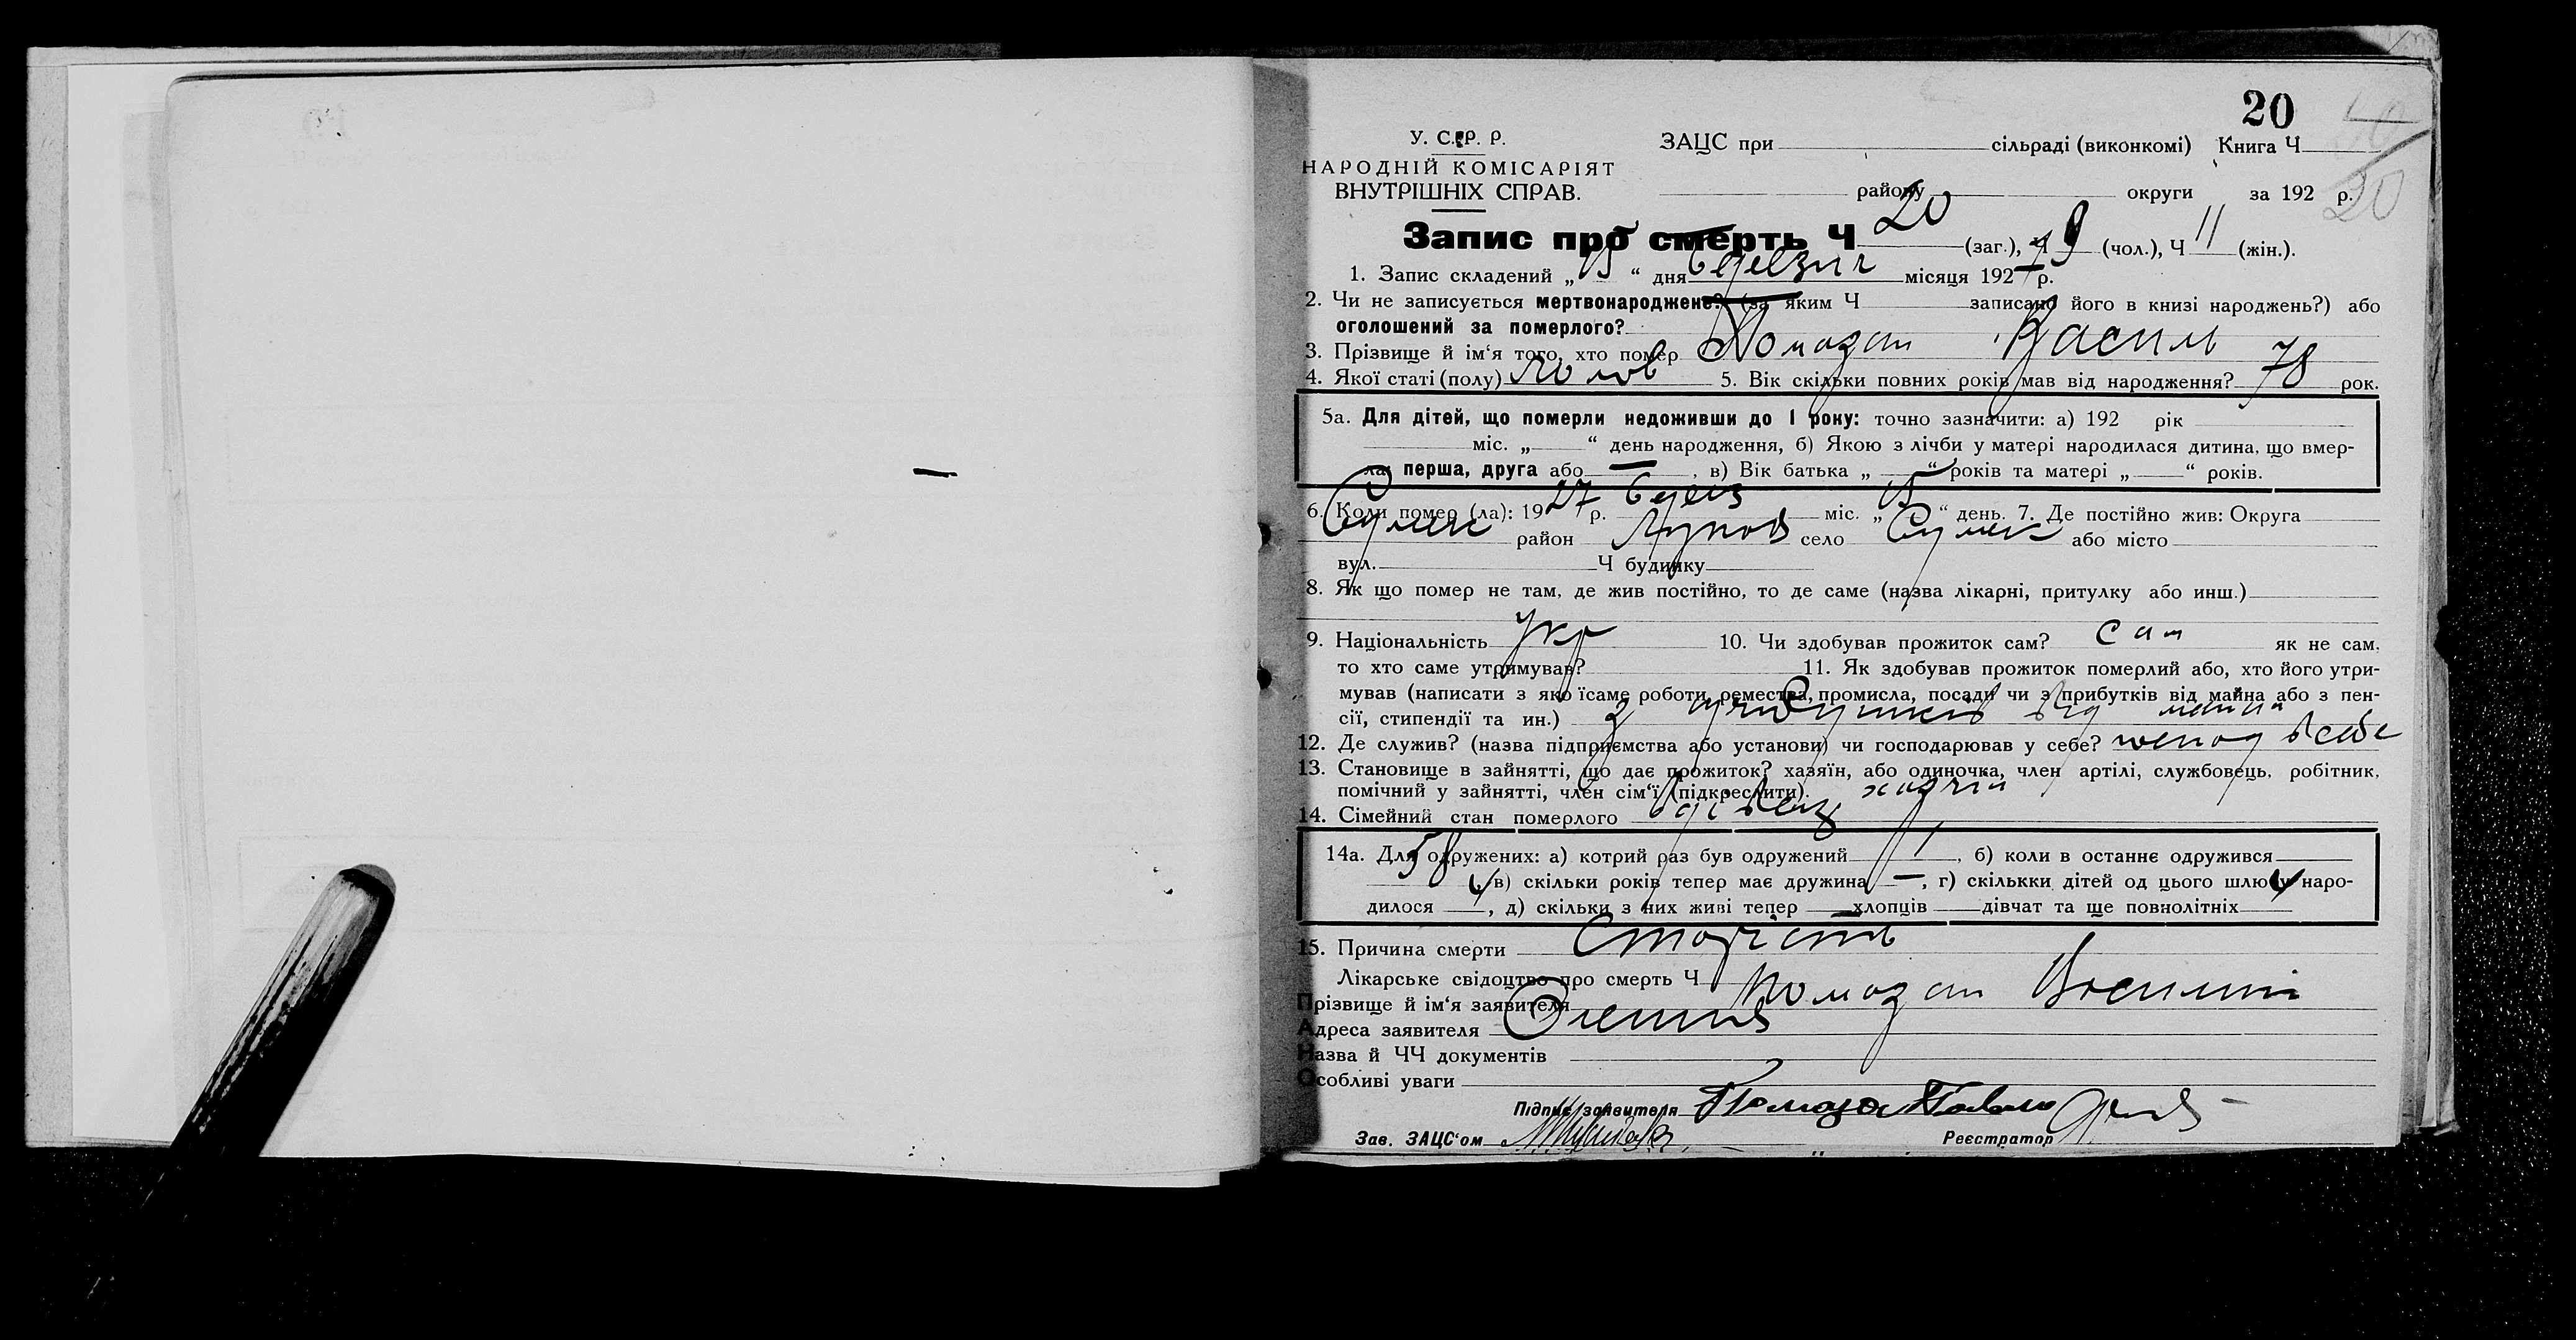 20
У. С. Р. Р.
ЗАЦС при сільраді (виконкомі) Книга Ч
НАРОДНІЙ КОМІСАРІЯТ
ВНУТРІШНІХ СПРАВ.
району округи за 192 р. 20
Запис про смерть Ч 20 (заг.), Ч 9 (чол.), Ч 11 (жін.).
1. Запис складений „ 15 “ дня березня місяця 1927 р.
2. Чи не записується мертвонароджене? (за яким Ч записано його в книзі народжень?) або
оголошений за померлого?
3. Прізвище й ім‘я того, хто помер Помазан Василь
4. Якої статі (полу) 5. Вік скільки повних років мав від народження? 78 рок.
5а. Для дітей, що померли недоживши до 1 року: точно зазначити: а) 192 рік
міс. „ “ день народження, б) Якою з лічби у матері народилася дитина, що вмер-
ла: перша, друга або — , в) Вік батька „ “ років та матері „ “ років.
6. Коли помер (ла): 1927 р. берез міс. „ 15 “ день. 7. Де постійно жив: Округа
район село або місто
вул. Ч будинку
8. Як що помер не там, де жив постійно, то де саме (назва лікарні, притулку або инш.)
9. Національність Укр 10. Чи здобував прожиток сам? сам як не сам,
то хто саме утримував? 11. Як здобував прожиток померлий або, хто його утри-
мував (написати з яко їсаме роботи, ремества, промисла, посади чи з прибутків від майна або з пен-
сії, стипендії та ин.) З прибутків від майна
12. Де служив? (назва підприємства або установи) чи господарював у себе? в себе
13. Становище в зайнятті, що дає прожиток? хазяїн, або одиночка, член артілі, службовець, робітник,
помічний у зайнятті, член сім‘ї (підкреслити). хазяїн
14. Сімейний стан померлого вдівець
14а. Для одружених: а) котрий раз був одружений 1 , б) коли в останнє одружився
58 , в) скільки років тепер має дружина — , г) скількки дітей од цього шлюбу наро-
дилося , д) скільки з них живі тепер хлопців дівчат та ще повнолітніх
15. Причина смерти Старість
Лікарське свідоцтво про смерть Ч
Прізвище й ім‘я заявителя Помазан
Адреса заявителя
Назва й ЧЧ документів
Особливі уваги
Підпис заявителя Помазан Павло
Зав. ЗАЦС‘ом Реєстратор